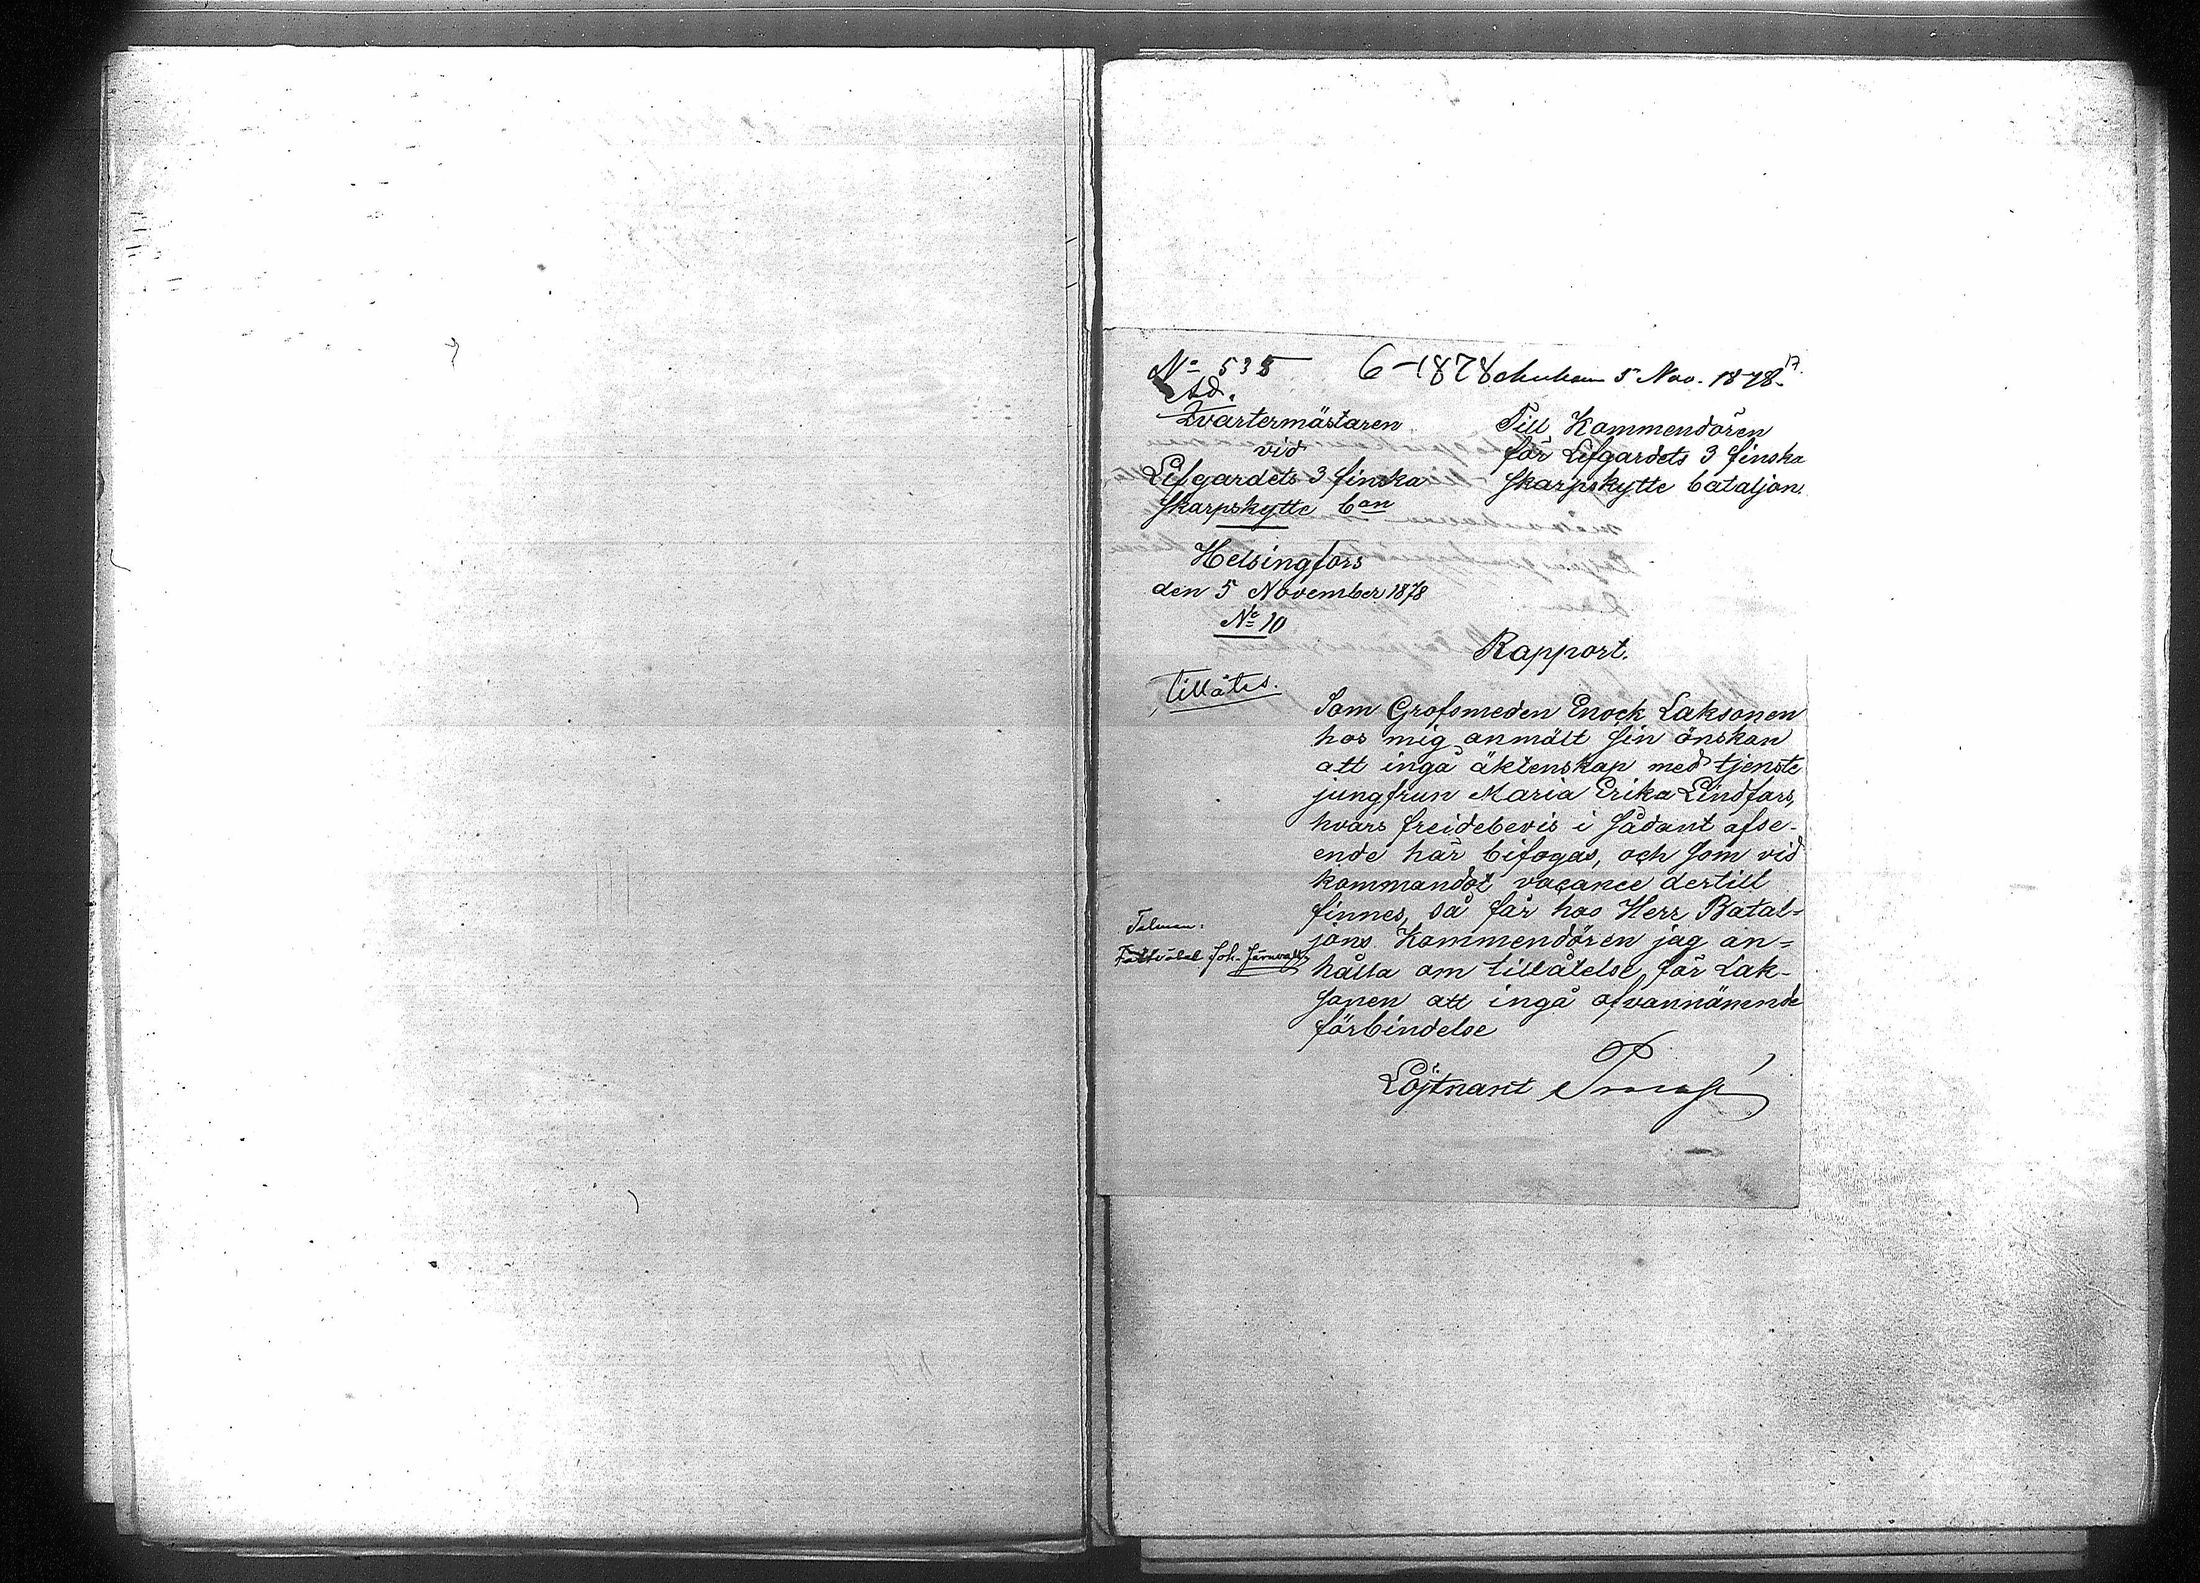 No 535 6-1878 5 Nov. 1878.
Ad.
Qvartermästaren
vid
Lifgardets 3 finska
skarpskytte b:on
Helsingfors
den 5 November 1878
No 10
Till Kommendören
för Lifgardets 3 finska
skarpskytte bataljon.
Rapport.
Tillåtes.
Som Grofsmeden Enock Laksonen
hos mig anmält sin önskan
att ingå äktenskap med tjenste
jungfrun Maria Erika Lindfors,
hvars frejdebevis i sådant afse-
ende här bifogas, och som vid
kommandot vacance dertill
finnes, så får hos Herr Batal-
jons Kommendören jag an-
hålla om tillåtelse för Lak-
sonen att ingå ofvannämnde
förbindelse
Talman:
Joh. Järnvall
Löjtnant